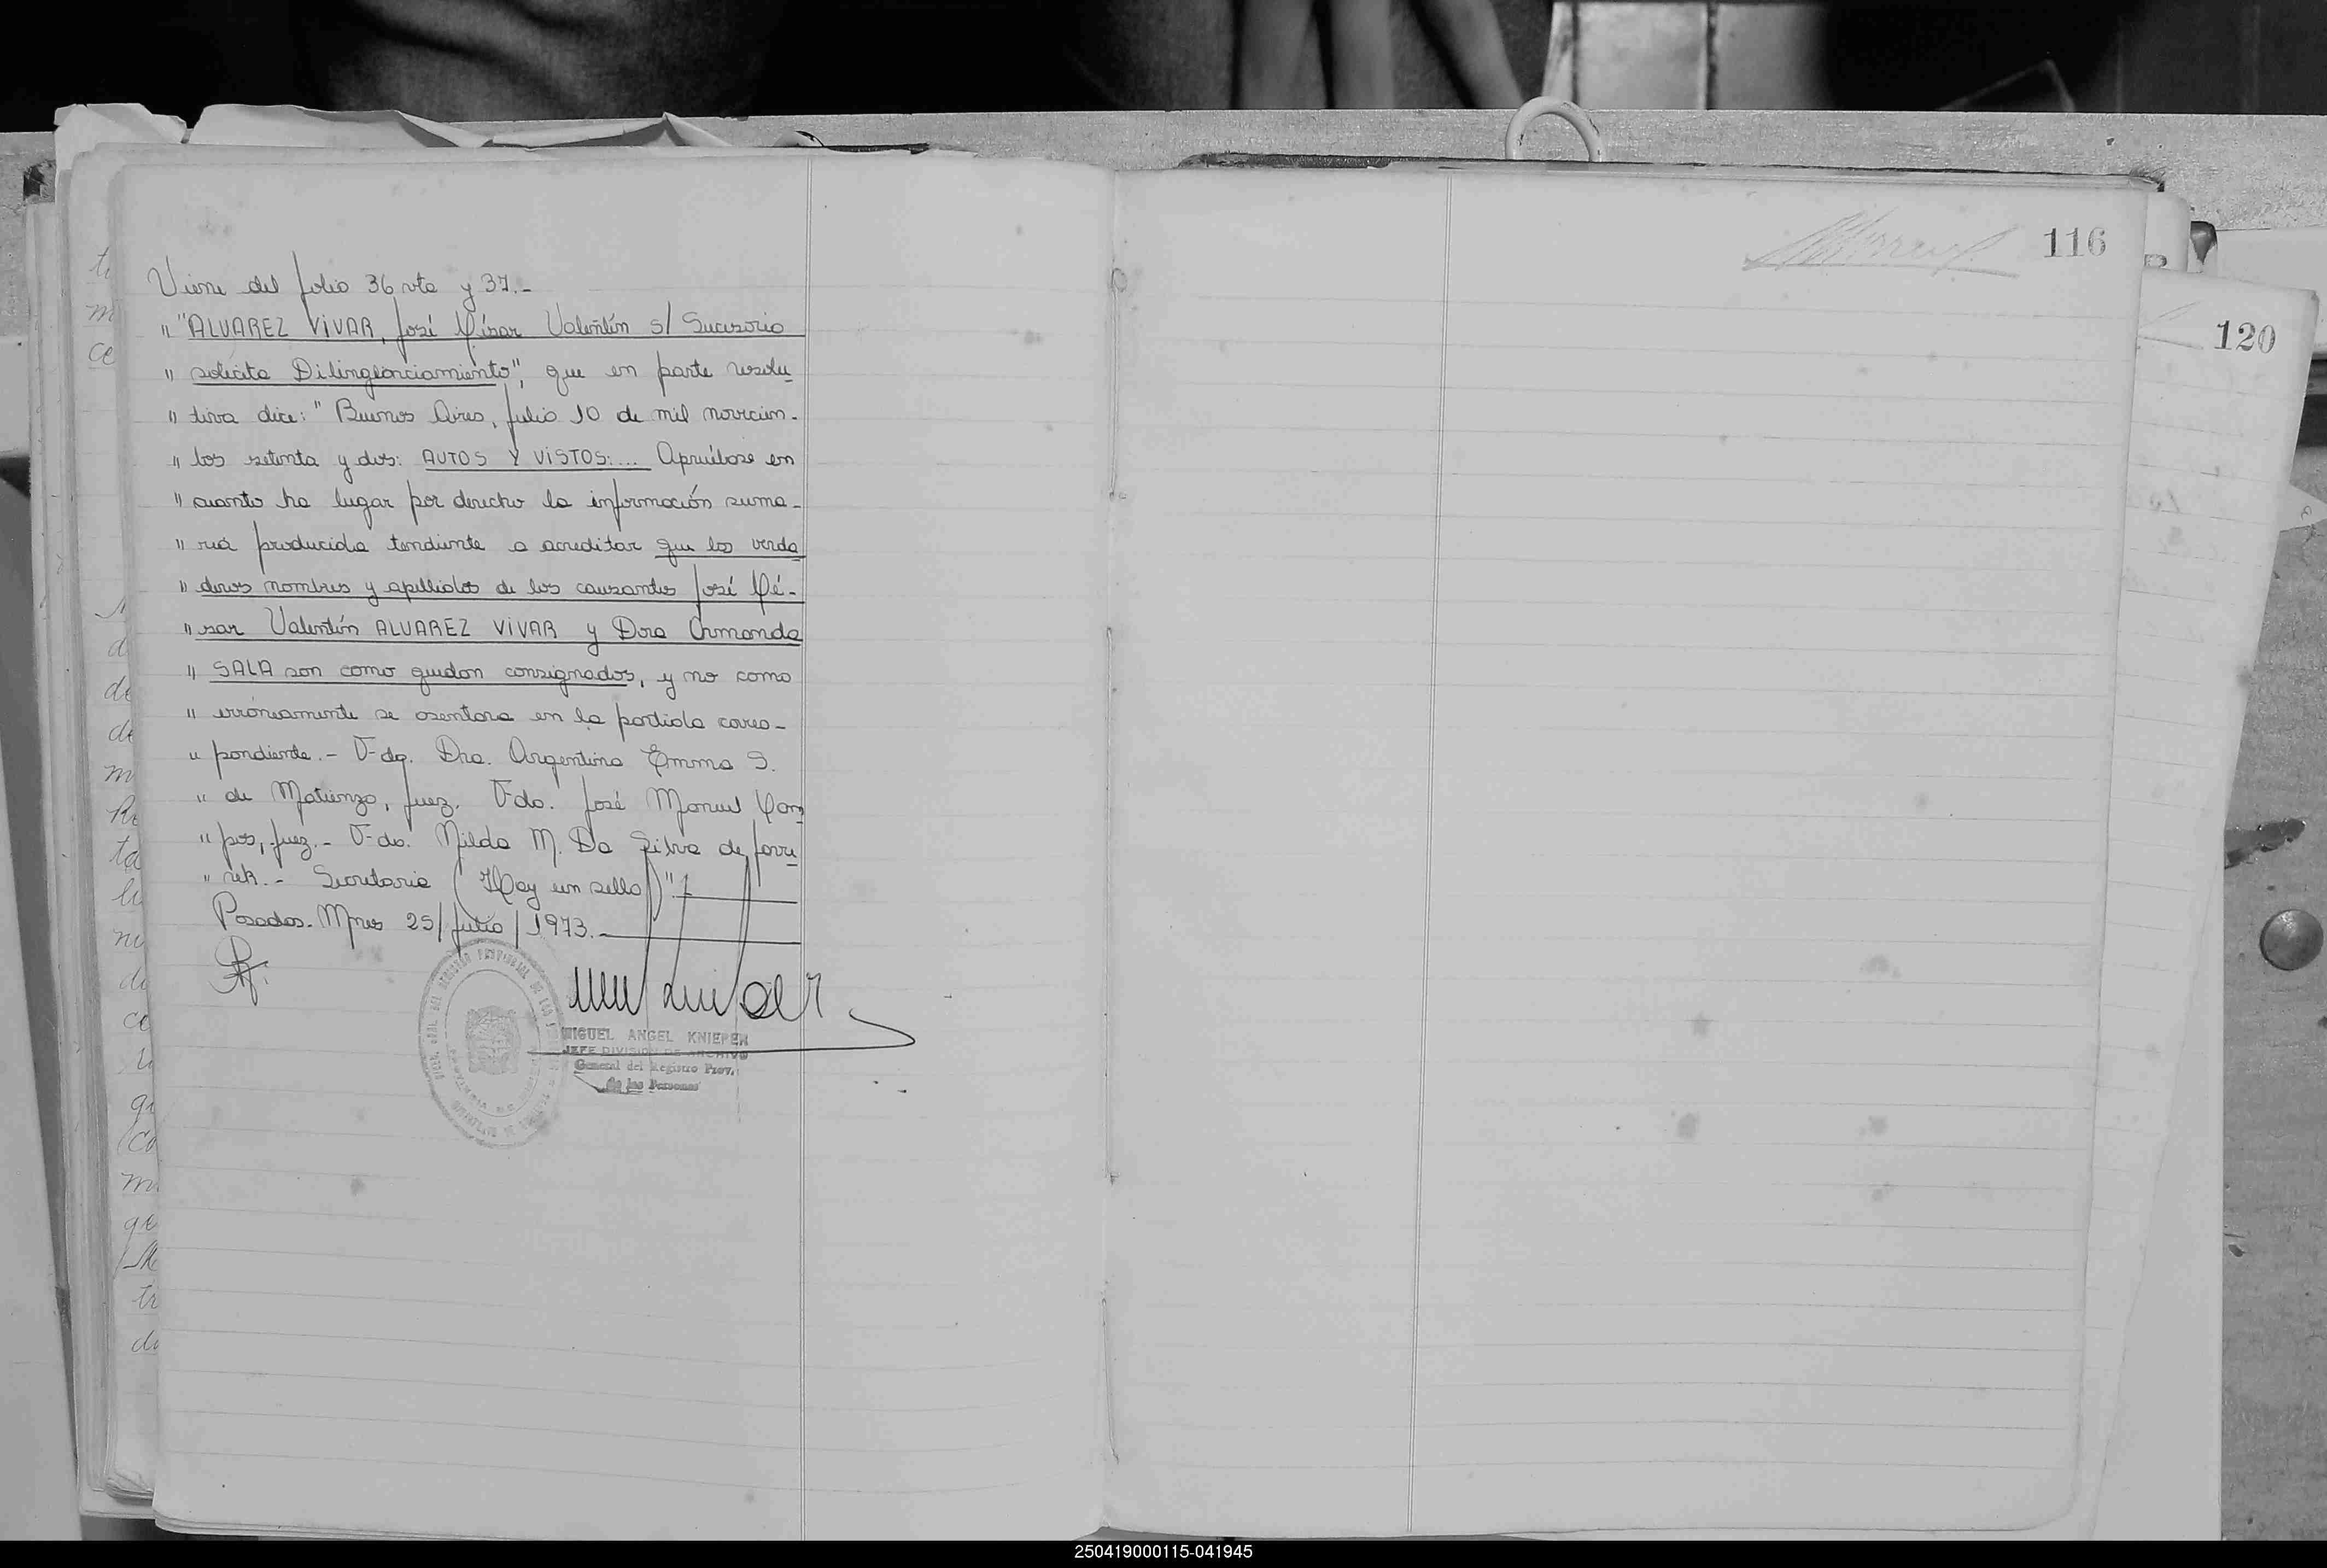 Viene del folio 36 vta y 37.-
" "ALVAREZ VIVAR, José César Valentín s/ Sucesorio
" solicita Dilingenciamiento", que en parte resolu-
" tiva dice: "Buenos Aires, Julio 10 de mil novecien-
" tos setenta y dos: AUTOS Y VISTOS:... Apruébase en
" cuanto ha lugar por derecho la información suma-
" ria producida tendiente a acreditar que los verda
" deros nombres y apellidos de los causantes José Cé-
" sar Valentín ALVAREZ VIVAR y Dora Armanda
" SALA son como quedan consignados, y no como
" erróneamente se asentara en la partida corres-
" pondiente.- F-do. Dra. Argentina Emma S.
" de Matienzo, Juez. F-do. José Manuel Cam
" pos, Juez.- F-do. Nilda M. Da Silva de
" Secretaria (Hay un sello)".
Posadas. Mnes 25/Julio/1973.-
MIGUEL ANGEL KNIEPER
JEFE DIVISION DE ARCHIVO
General del Registro Prov.
de las Personas
116
120
250419000115-041945